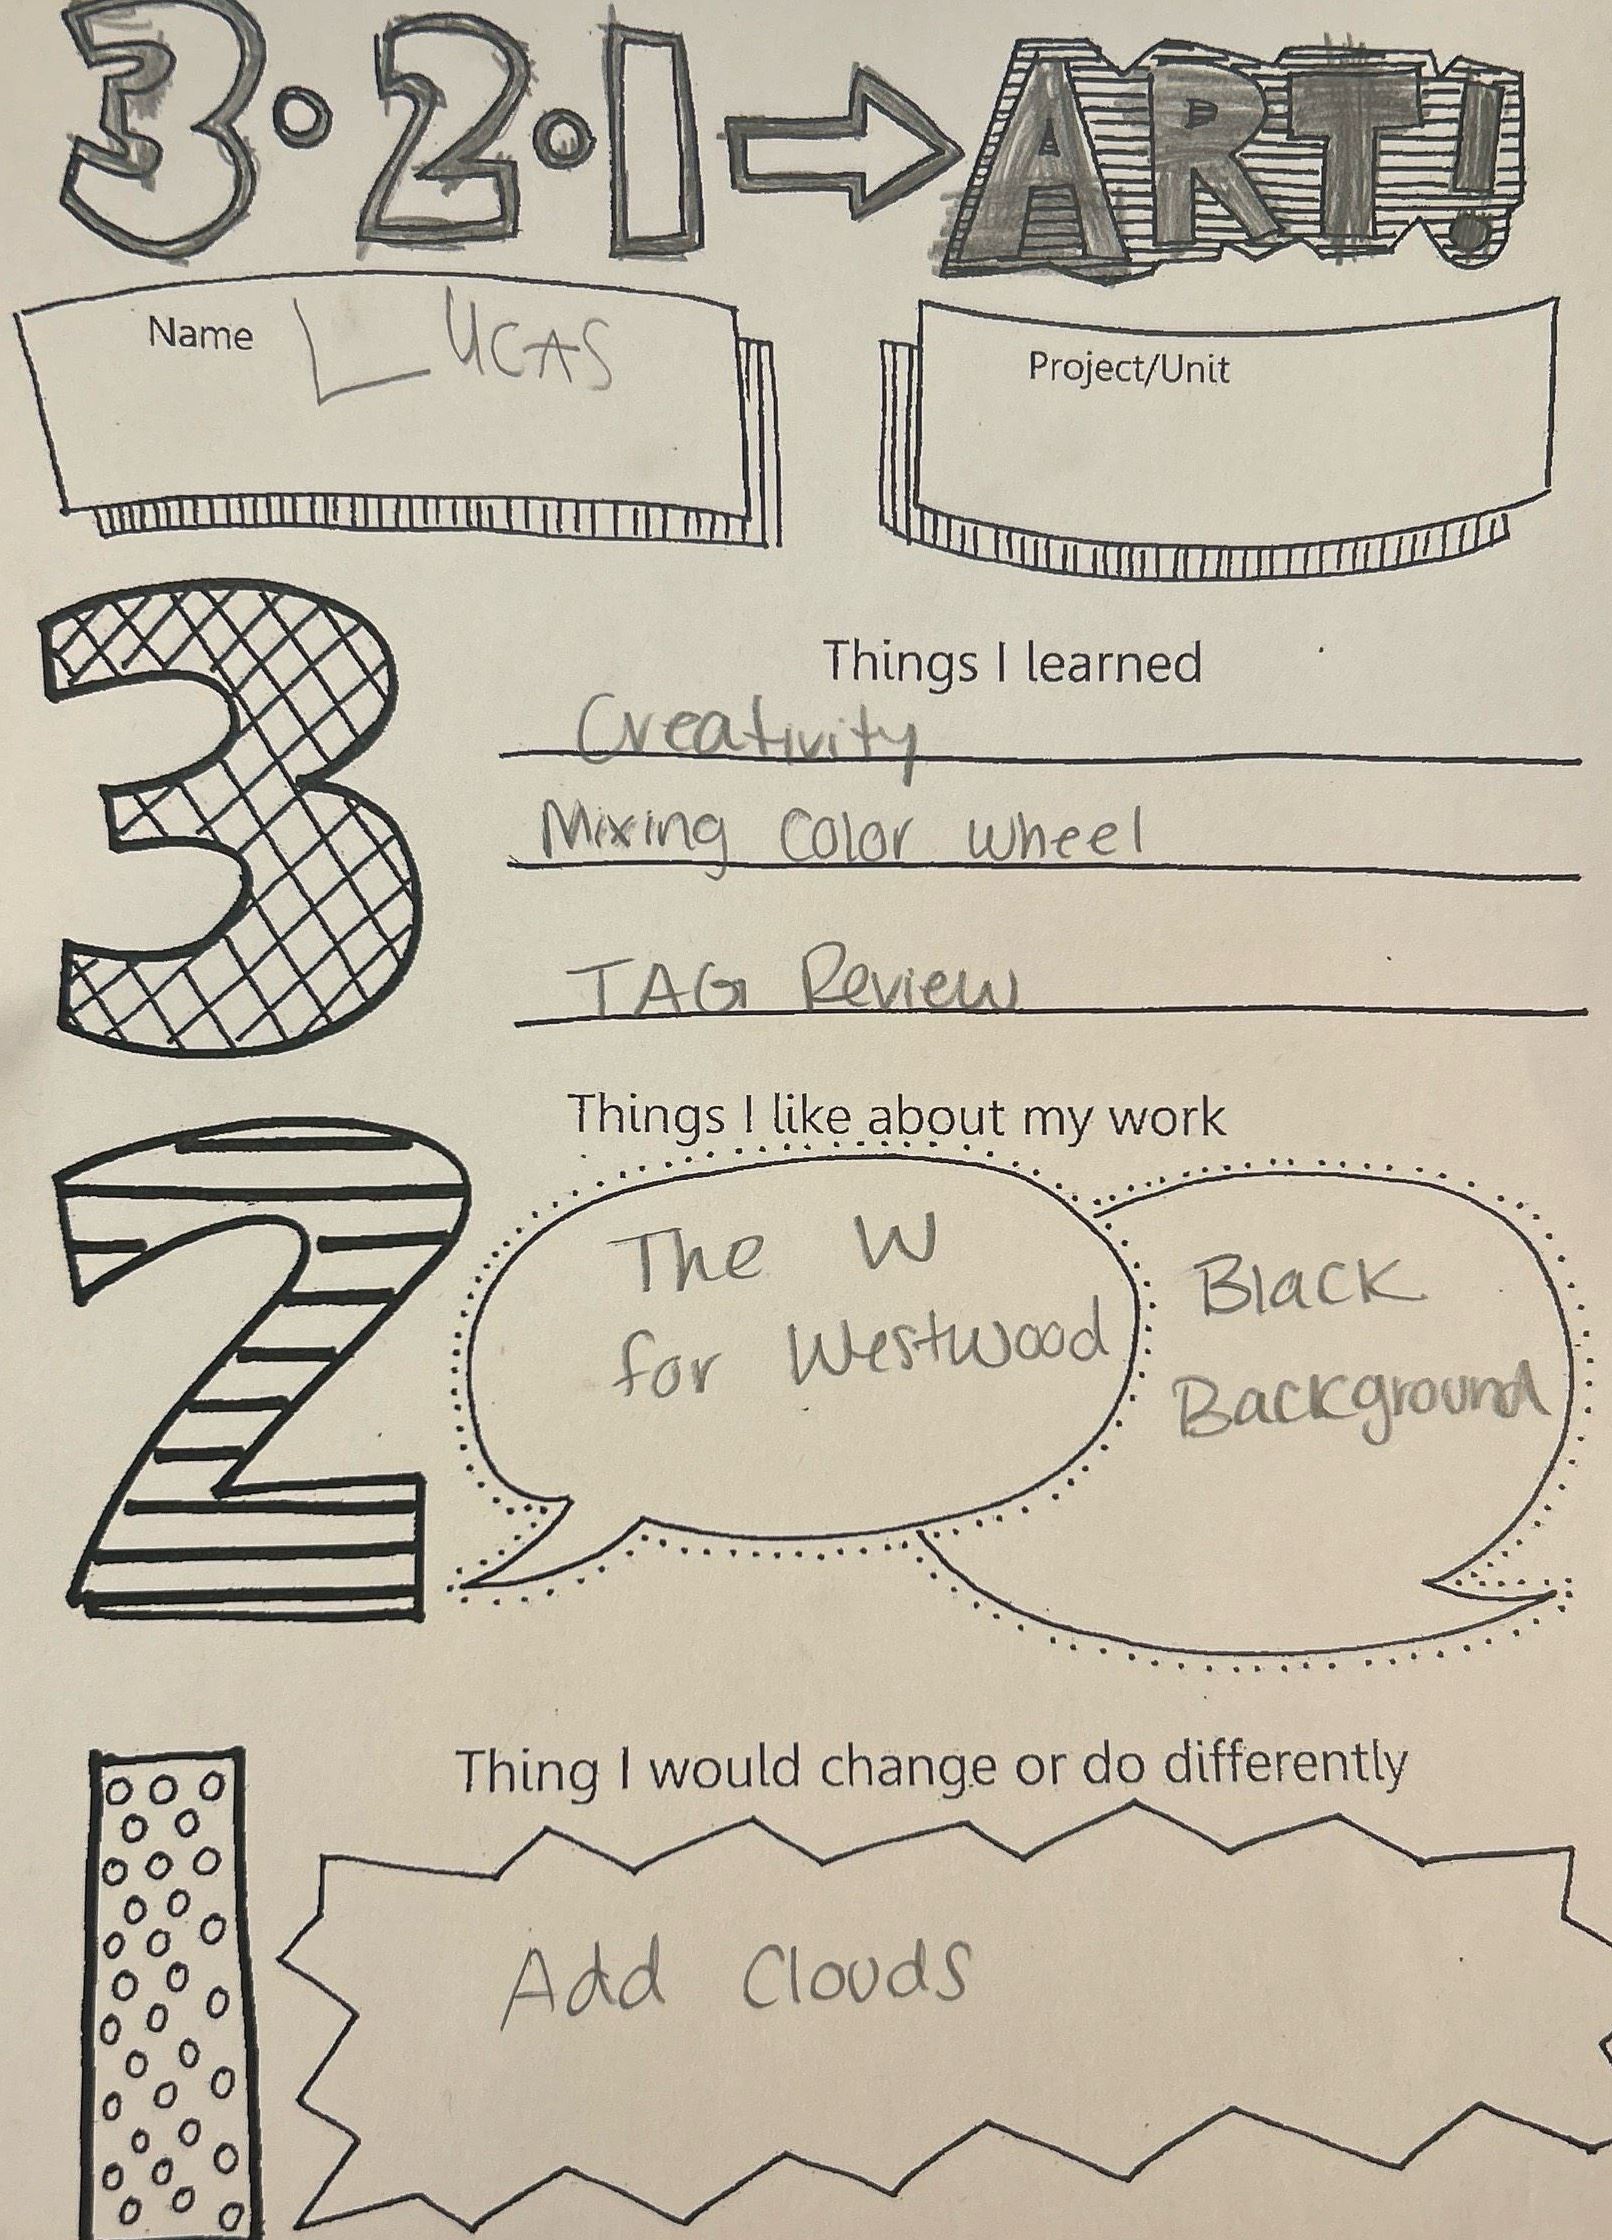 3·2·1 → ART!
Name LUCAS
Project/Unit
3
Things I learned
Creativity
Mixing Color Wheel
TAG Review
2
Things I like about my work
The W
for Westwood
Black
Background
1
Thing I would change or do differently
Add Clouds